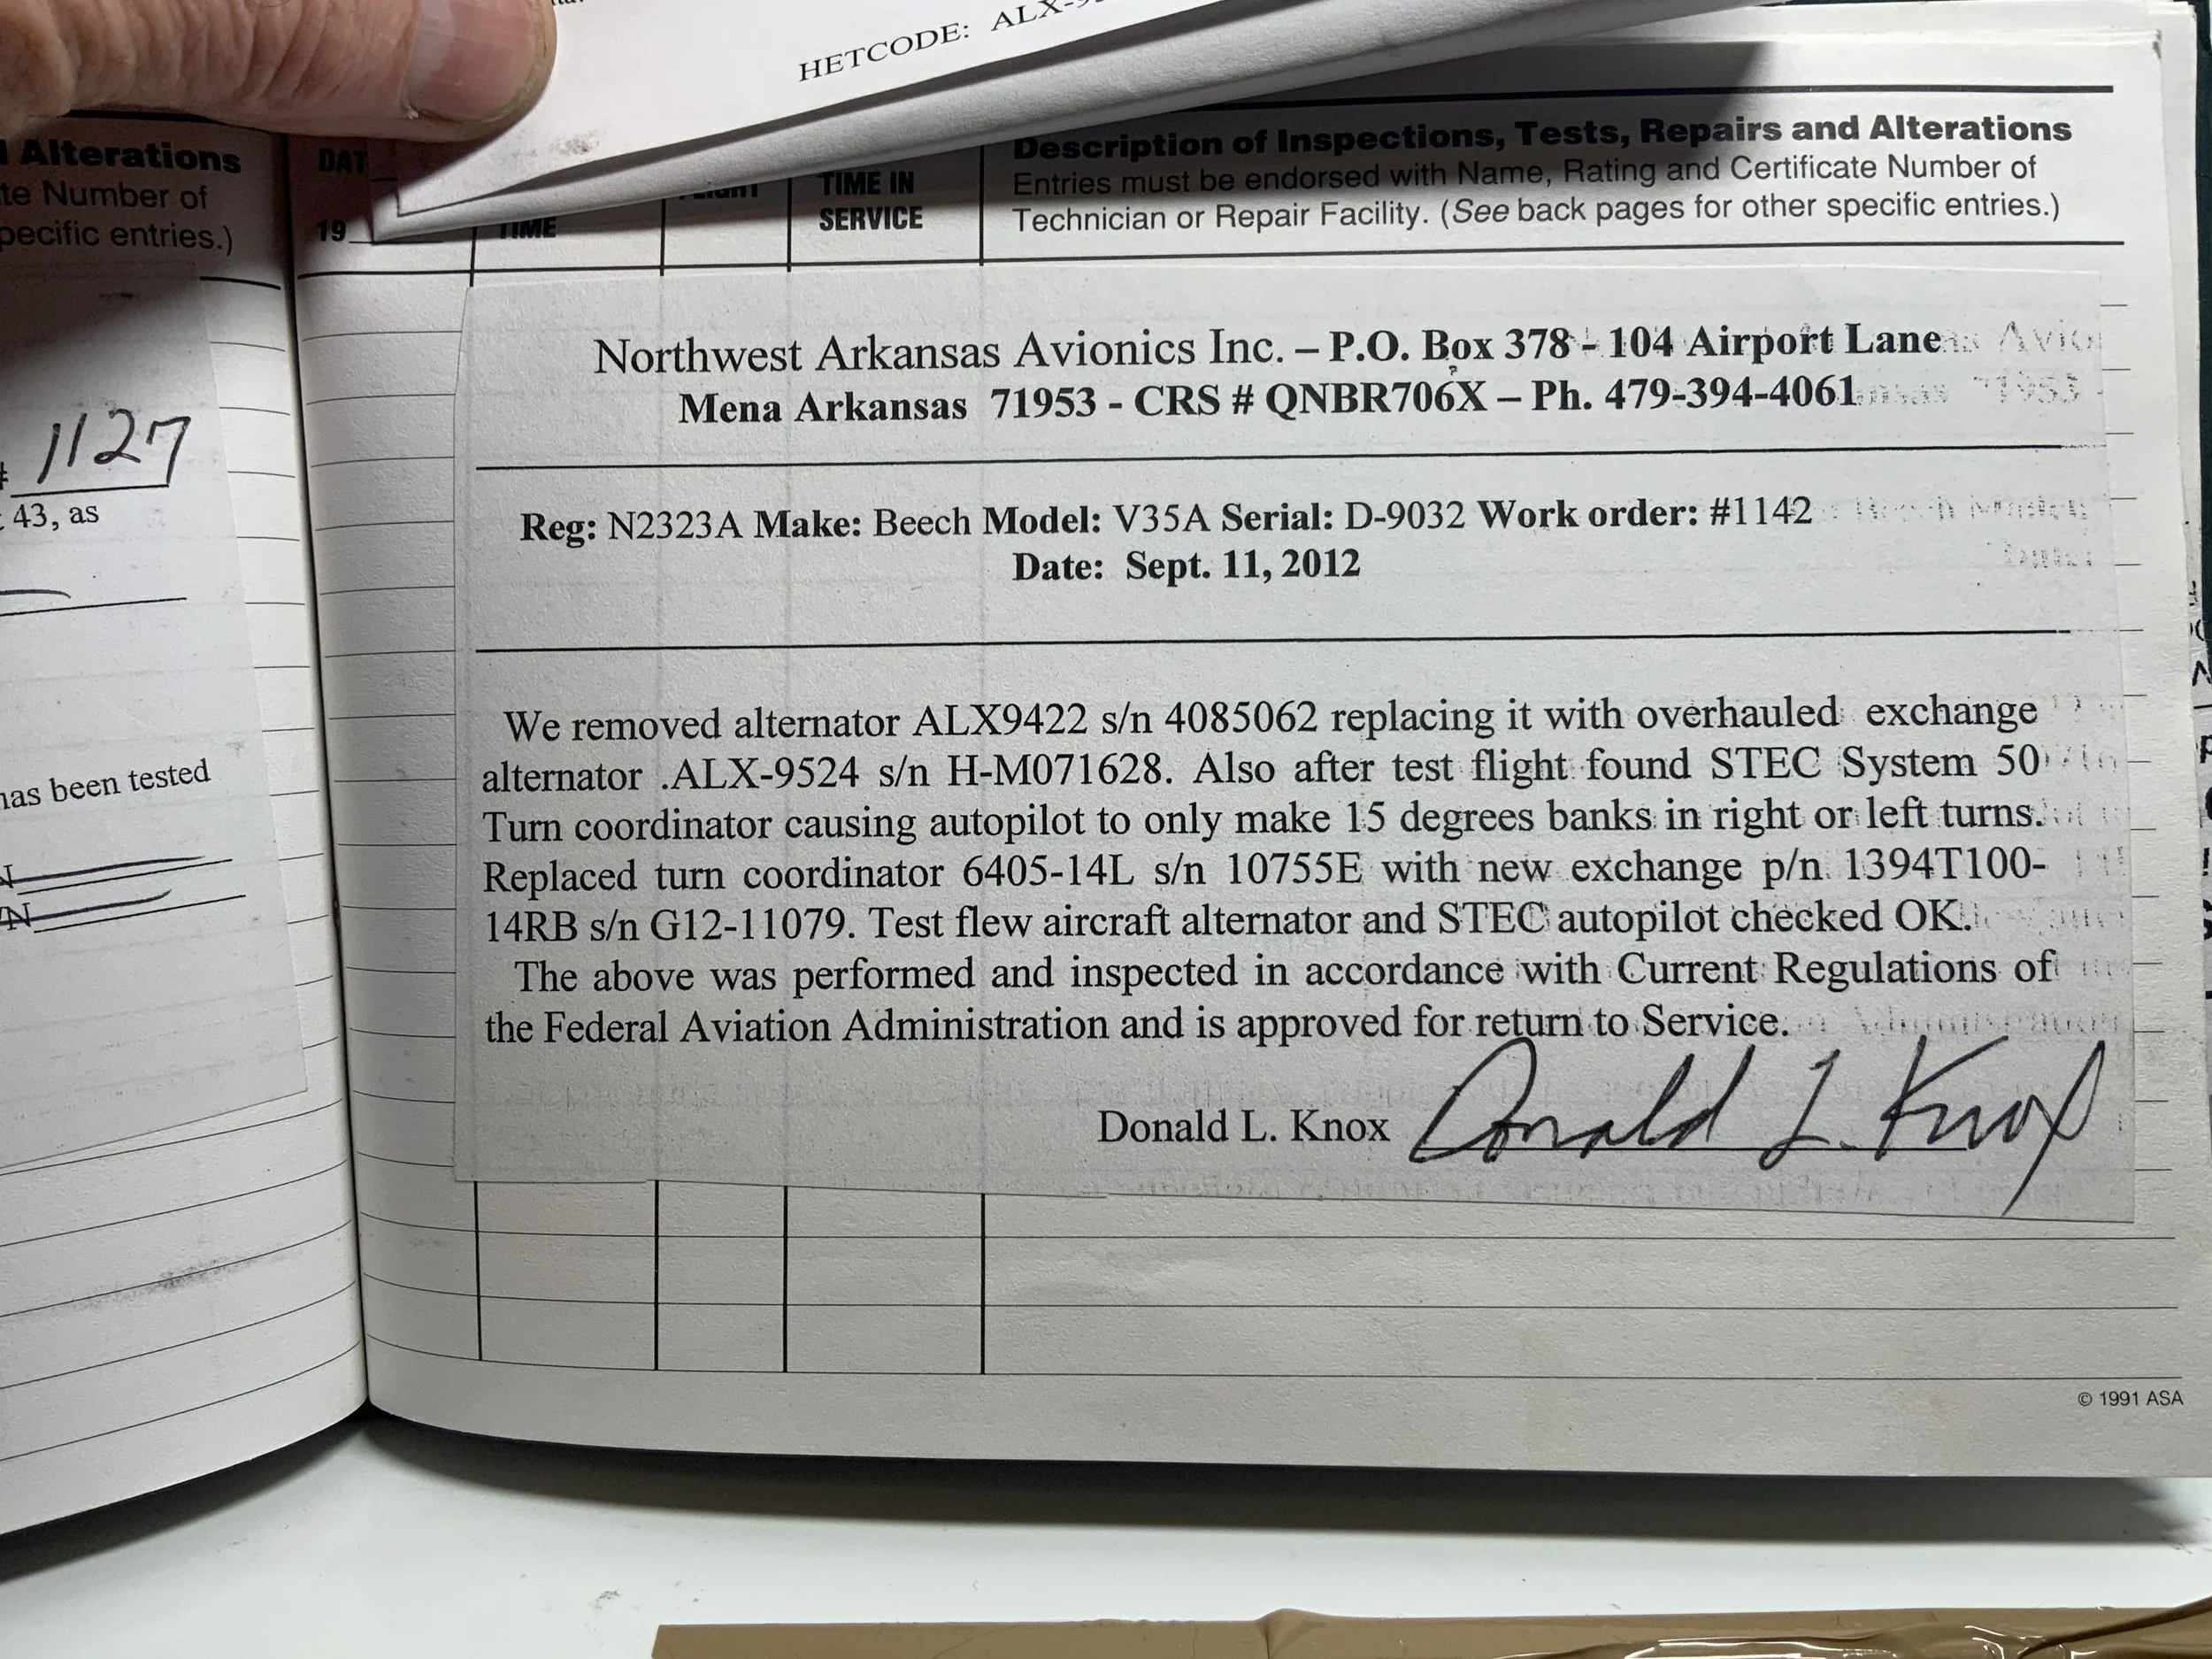 HETCODE: ALX-9
Alterations
te Number of
pecific entries.)
1127
43, as
has been tested
N
N
DAT
19
TIME
TIME IN
SERVICE
Description of Inspections, Tests, Repairs and Alterations
Entries must be endorsed with Name, Rating and Certificate Number of
Technician or Repair Facility. (See back pages for other specific entries.)
Northwest Arkansas Avionics Inc. – P.O. Box 378 - 104 Airport Lane
Mena Arkansas 71953 - CRS # QNBR706X – Ph. 479-394-4061
Reg: N2323A Make: Beech Model: V35A Serial: D-9032 Work order: #1142
Date: Sept. 11, 2012
We removed alternator ALX9422 s/n 4085062 replacing it with overhauled exchange
alternator .ALX-9524 s/n H-M071628. Also after test flight found STEC System 50
Turn coordinator causing autopilot to only make 15 degrees banks in right or left turns.
Replaced turn coordinator 6405-14L s/n 10755E with new exchange p/n 1394T100-
14RB s/n G12-11079. Test flew aircraft alternator and STEC autopilot checked OK.
The above was performed and inspected in accordance with Current Regulations of
the Federal Aviation Administration and is approved for return to Service.
Donald L. Knox Donald L. Knox
© 1991 ASA